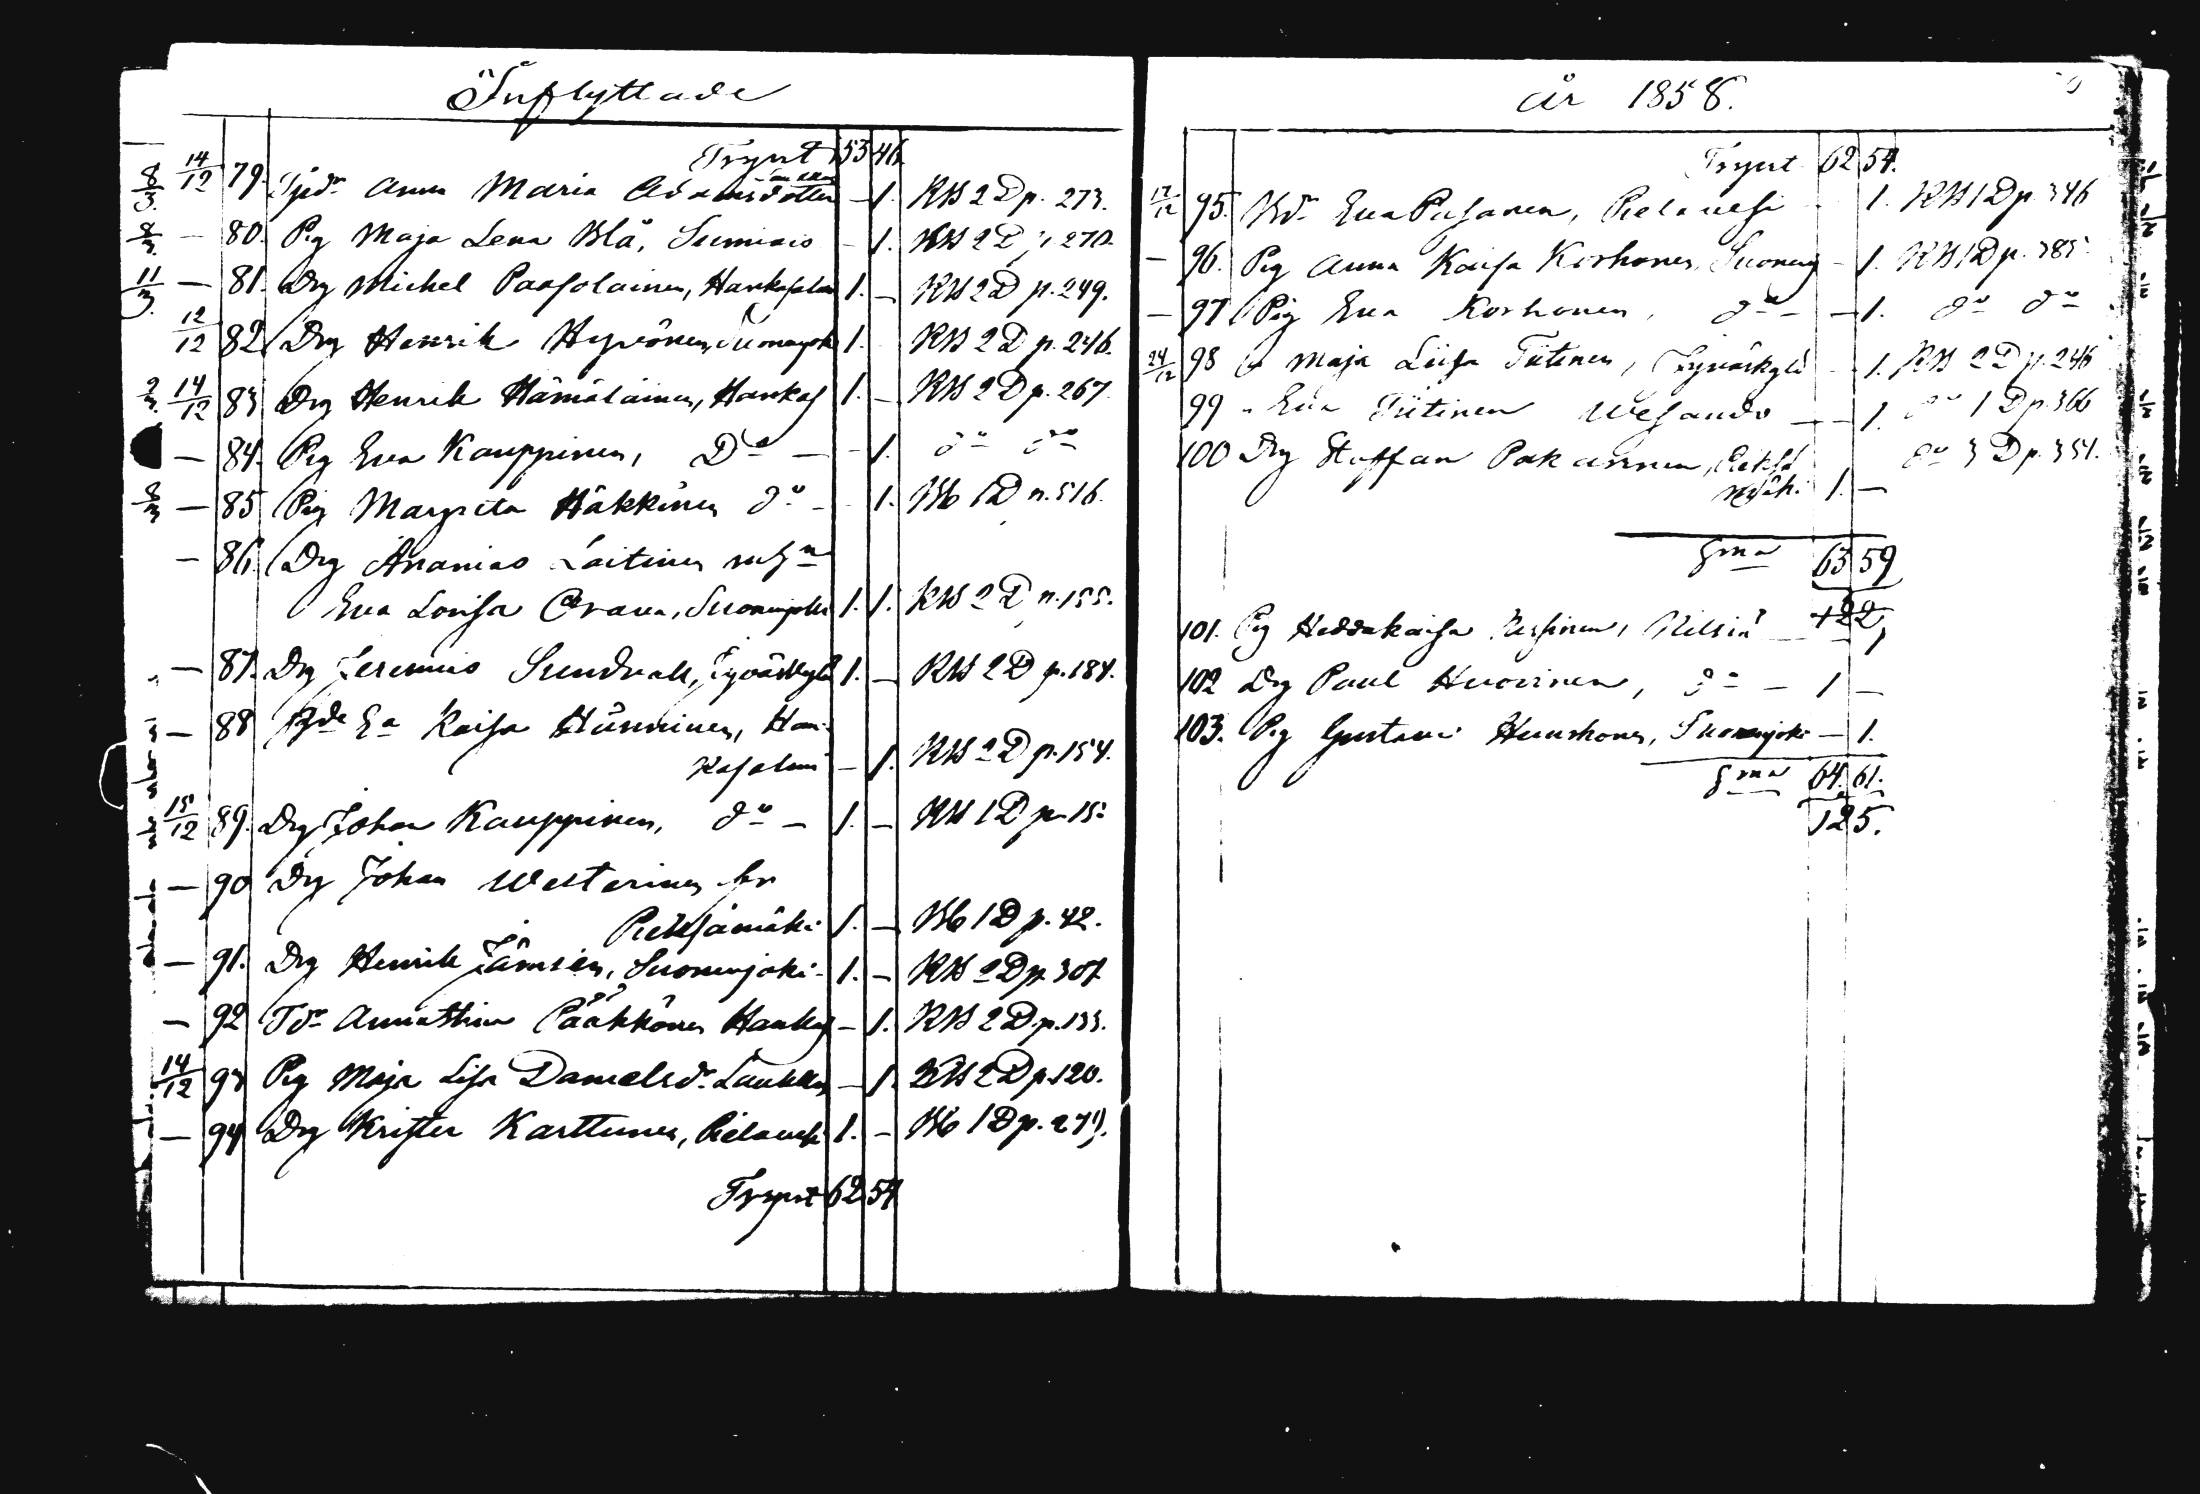 Inflyttade
Trpt 53 46
8/3 14/12 79. Anna Maria Adamsdotter — 1. KB 2 D p. 273.
8/3 — 80. Pig Maja Lena Blå, Sumiais — 1. KB 2 D p. 270.
11/3 — 81. Drg Michel Paasolainen, Hankasalmi 1. — KB 2 D p. 249.
12/12 82 Drg Henrik Hyvönen, Suonenjoki 1. KB 2 D p. 246.
2/3 14/12 83 Drg Henrik Hämäläinen, Hankas 1. — KB 2 D p. 267.
— 84. Pig Eva Kauppinen, Do — — 1. do do
8/3 — 85 Pig Margreta Häkkinen do — 1. 1 D p. 516.
— 86. Drg Ananias Laitinen m hu
Eva Lovisa Orava, Suonenjoki 1. 1. KB 2 D p. 155.
— 87. Drg Jeremias Sundvall, Jyväskylä 1. — KB 2 D p. 184.
— 88 Ea Kaisa Hänninen, Han-
kasalmi — 1. KB 2 D p. 154.
15/12 89. Drg Johan Kauppinen, do — 1. — KB 1 D p. 15
— 90 Drg Johan Westerinen fr
Pieksämäki 1. — 1 D p. 42.
— 91. Drg Henrik Jämsén, Suonenjoki 1. — KB 2 D p. 307
— 92 Pääkkönen Hankas — 1. KB 2 D p. 133.
14/12 93 Pig Maja Lisa Danielsdr Laukkas — 1. KB 2 D p. 120.
— 94 Drg Krister Karttunen, Pielavesi 1. — 1 D p.
Trpt 62 54
år 1858.
Trpt 62 54.
17/12 95. Eva Pusanen, Pielavesi — 1. KB 1 D p. 346
— 96. Pig Anna Kaisa Korhonen, Suonenj — 1. KB 1 D p. 385.
— 97 Pig Eva Korhonen, do — — 1. do do
24/12 98 Maja Liisa Tiitinen, Jyväskylä — 1. KB 2 D p. 246
99 Eva Tiitinen Wesando — 1. do 1 D p. 366
100 Drg Staffan Pakarinen, Pieksä
mäki 1. — do 3 D p. 354.
Sma 63 59
122
101. Pig Heddakaisa Nilsiä — 1
102 Drg Paul Huovinen, do — 1 —
103. Pig Gustava Suonenjoki — 1.
Sma 64. 61.
125.